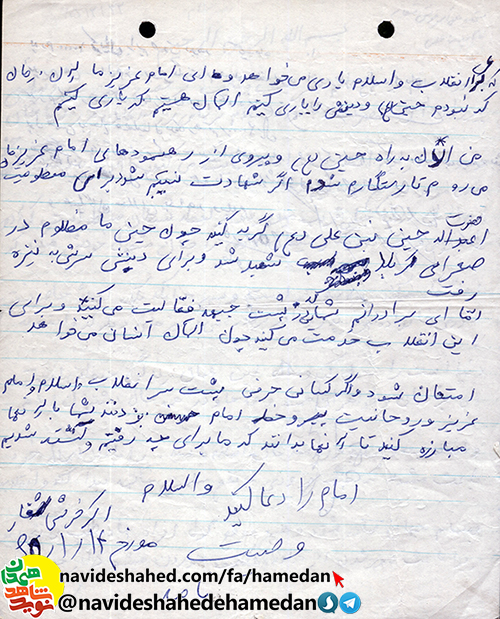 که برای انقلاب و اسلام یاری می‌خواهد و ما ای امام عزیز ما
که شود حسینی و دینی را یاری کنید الان هستیم که یاری کنیم
من الان به راه حسین (ع) و پیروی از رهنمودهای امام عزیزمان
می روم تا رستگار شوم اگر شهادت نصیبم شود برای مظلومیت
حضرت
اباعبدالله حسین بن علی (ع) گریه کنید چون حسین ما مظلوم در
صحرای کربلا شهید شد و برای دینش سرش به نیزه
رفت
اما ای برادرانم شمائی که در پشت جبهه فعالیت می‌کنید و برای
این انقلاب خدمت می‌کنید چون الان انسانی می‌خواهد
امتحان شود و اگر کسانی حرفی پشت سر انقلاب و اسلام و امام
عزیز و روحانیت پیرو خط امام می زدند شما با آنها
مبارزه کنید تا آنها بدانند که ما برای چه رفتیم و کشته شدیم
امام را دعا کنید والسلام
اکبر قرشی
وصیت مورخ
navideshahed.com/fa/hamedan
@navideshahedehamedan
نوید شاهد همدان